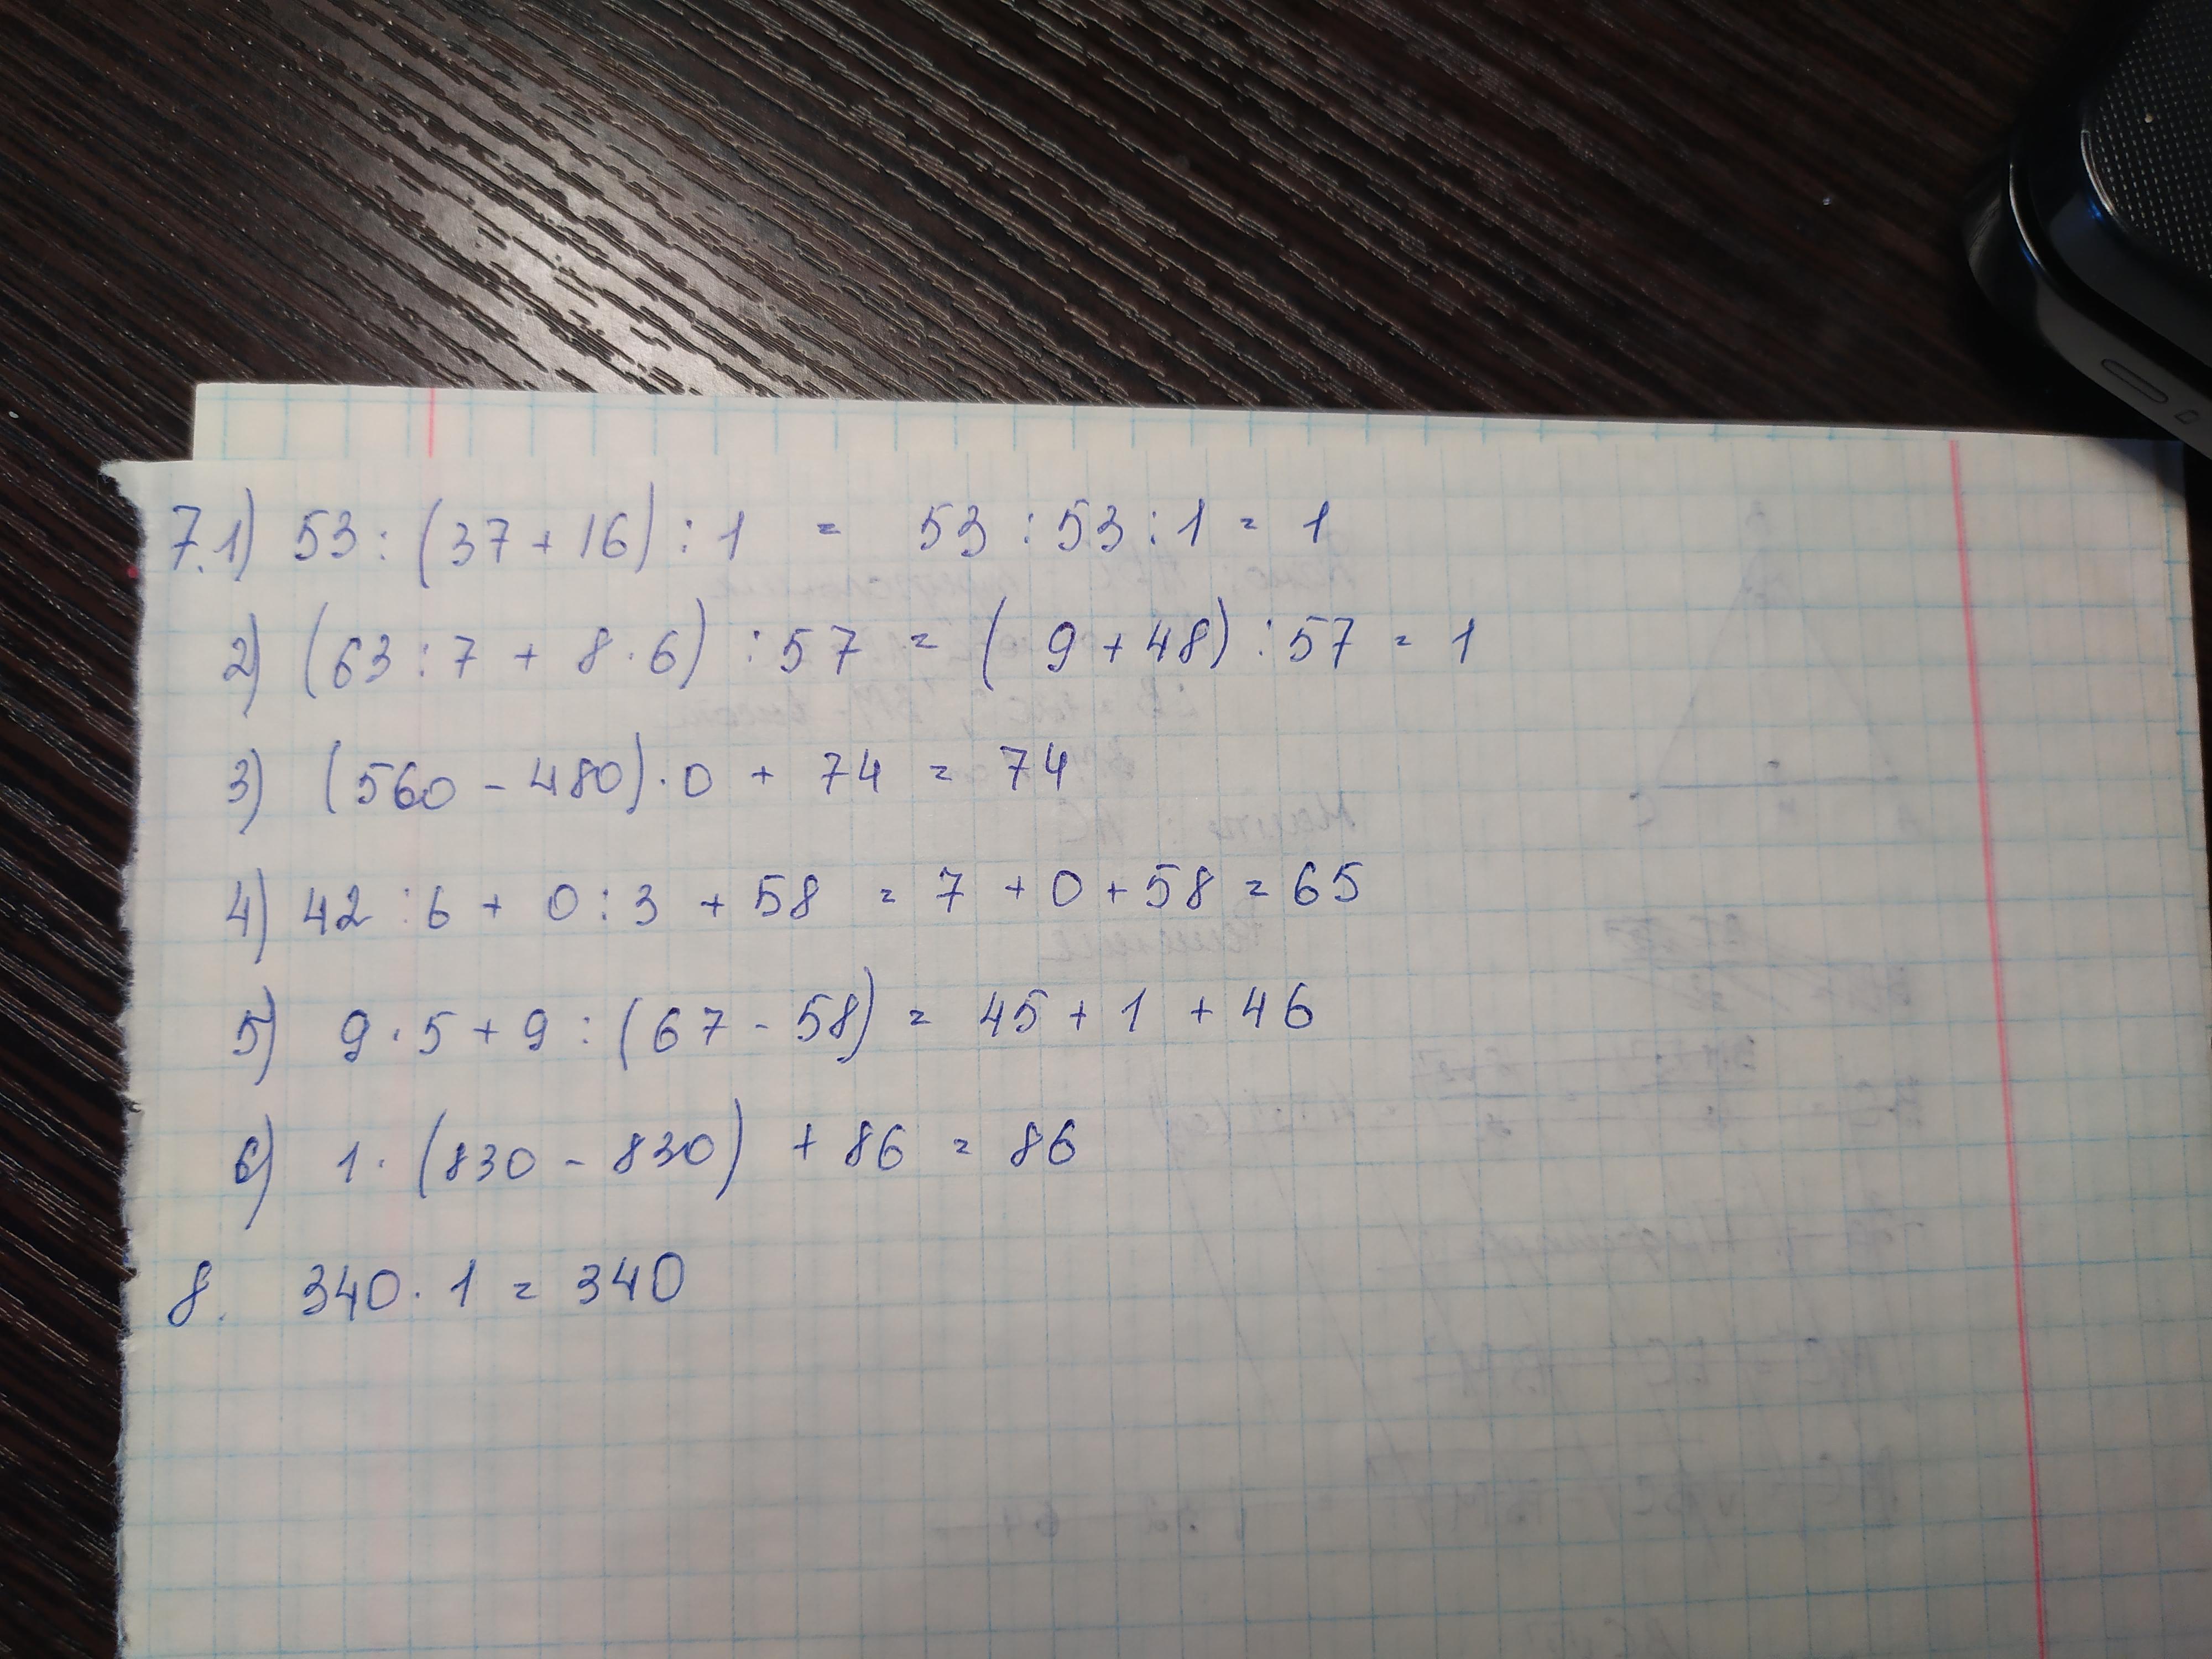 7.1) 53 : (37 + 16) : 1 = 53 : 53 : 1 = 1
2) (63 : 7 + 8 · 6) : 57 = (9 + 48) : 57 = 1
3) (560 - 480) · 0 + 74 = 74
4) 42 : 6 + 0 : 3 + 58 = 7 + 0 + 58 = 65
5) 9 · 5 + 9 : (67 - 58) = 45 + 1 + 46
6) 1 · (830 - 830) + 86 = 86
8. 340 · 1 = 340